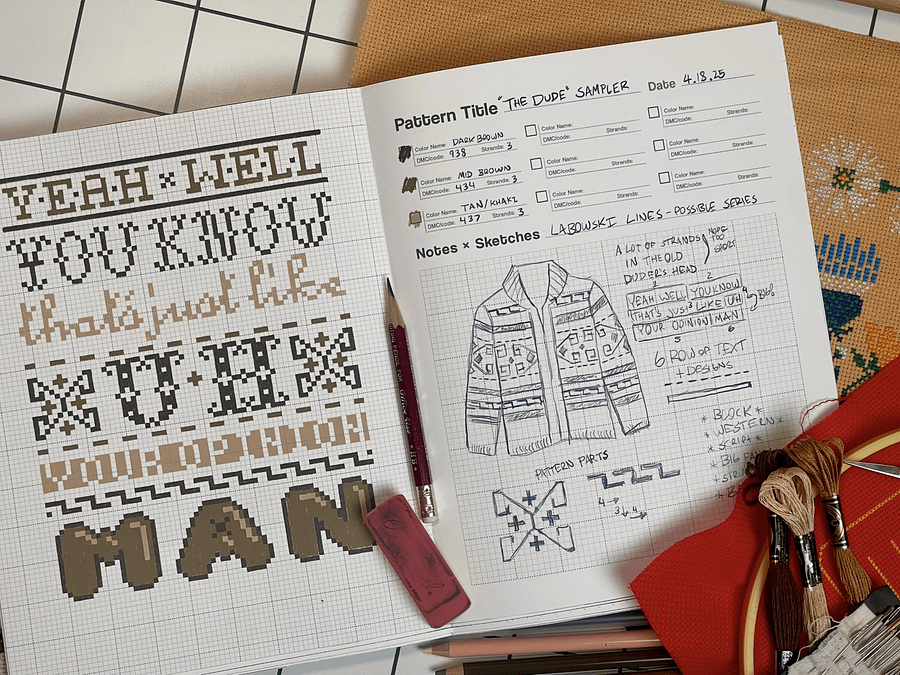 YEAH × WELL
YOU KNOW
that's just like
UH
YOUR OPINION
MAN
Pattern Title "THE DUDE" SAMPLER
Date 4.18.25
Color Name: DARK BROWN
DMC/code: 938 Strands: 3
Color Name: MID BROWN
DMC/code: 434 Strands: 3
Color Name: TAN/KHAKI
DMC/code: 437 Strands: 3
Color Name:
DMC/code: Strands:
Color Name:
DMC/code: Strands:
Color Name:
DMC/code: Strands:
Color Name:
DMC/code: Strands:
Color Name:
DMC/code: Strands:
Color Name:
DMC/code: Strands:
Notes × Sketches LABOWSKI LINES - POSSIBLE SERIES
A LOT OF STRANDS
IN THE OLD
DUDER'S HEAD
NOPE
TOO
SHORT
1 2
YEAH WELL YOU KNOW
THAT'S JUST 3 LIKE UH 4 BIG!
YOUR OPINION MAN
5 6
6 ROW OF TEXT
+ DESIGNS
* BLOCK *
* WESTERN *
* SCRIPT *
* BIG
PATTERN PARTS
4
3 4